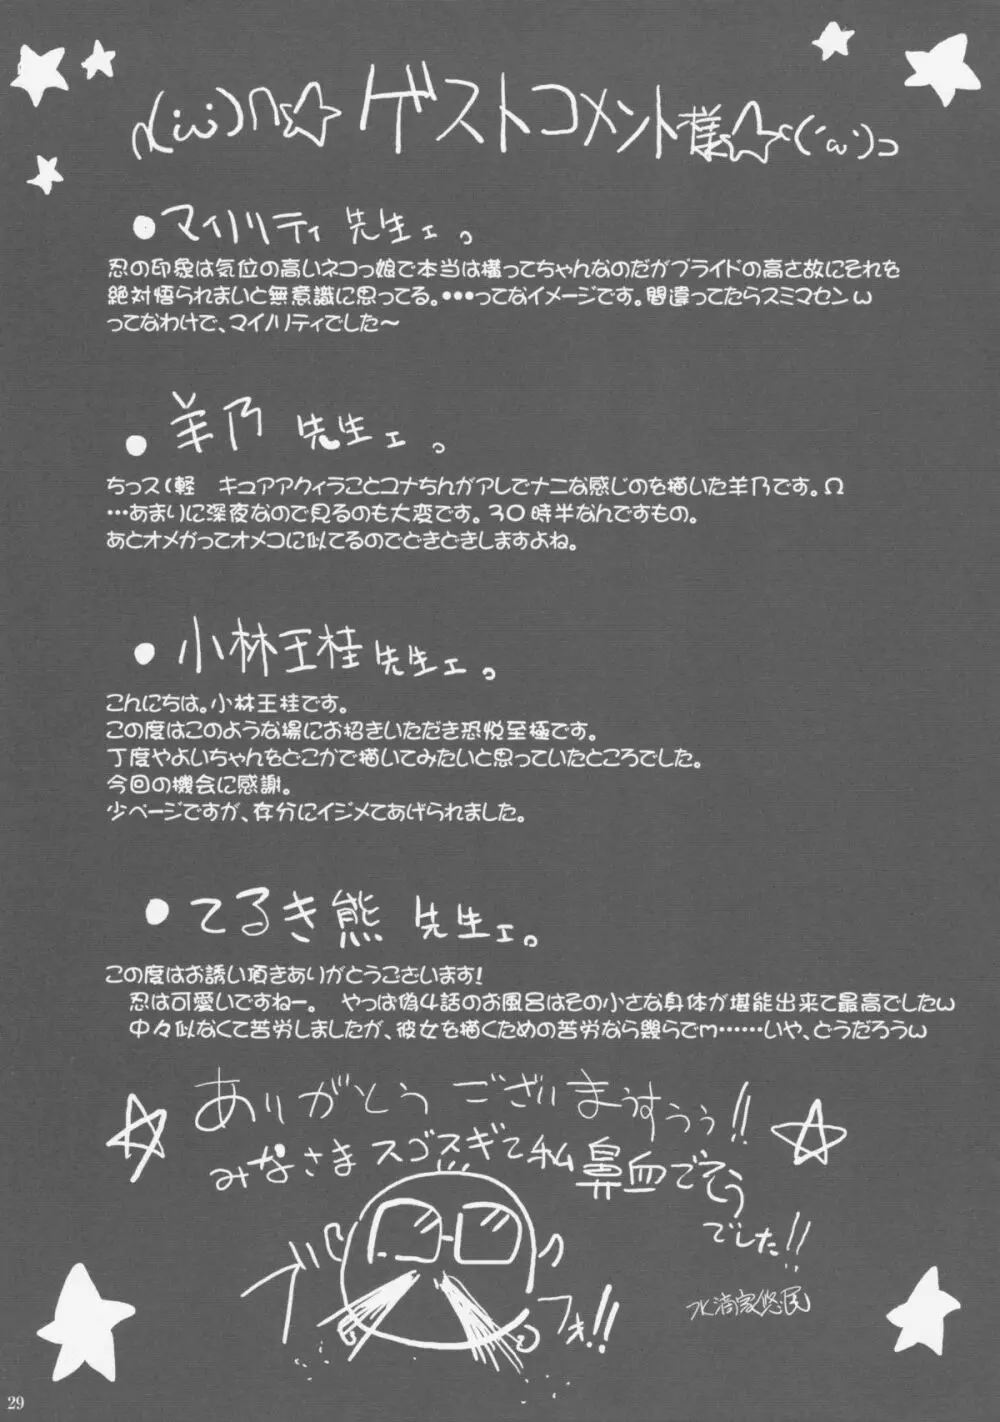 ∩(´ω`)∩☆ゲストコメント様☆⊂(´ω`)⊃
●マイノリティ 先生ェ。
忍の印象は気位の高いネコっ娘で本当は構ってちゃんなのだがプライドの高さ故にそれを
絶対悟られまいと無意識に思ってる。・・・ってなイメージです。間違ってたらスミマセンω
ってなわけで、マイノリティでした～
●羊乃 先生ェ。
ちっス(軽 キュアアクィラことユナちんがアレでナニな感じのを描いた羊乃です。Ω
…あまりに深夜なので見るのも大変です。30時半なんですもの。
あとオメガってオメコに似てるのでどきどきしますよね。
●小林王桂先生ェ。
こんにちは。小林王桂です。
この度はこのような場にお招きいただき恐悦至極です。
丁度やよいちゃんをどこかで描いてみたいと思っていたところでした。
今回の機会に感謝。
少ページですが、存分にイジメてあげられました。
●てるき熊 先生ェ。
この度はお誘い頂きありがとうございます!
忍は可愛いですねー。 やっぱ偽4話のお風呂はその小さな身体が堪能出来て最高でしたω
中々似なくて苦労しましたが、彼女を描くための苦労なら幾らでm……いや、どうだろうω
ありがとう ございまぅすぅぅ!!
みなさまスゴスギて私鼻血でそう
でした!!
ブバ
フォ!!
水滴家悠民
29